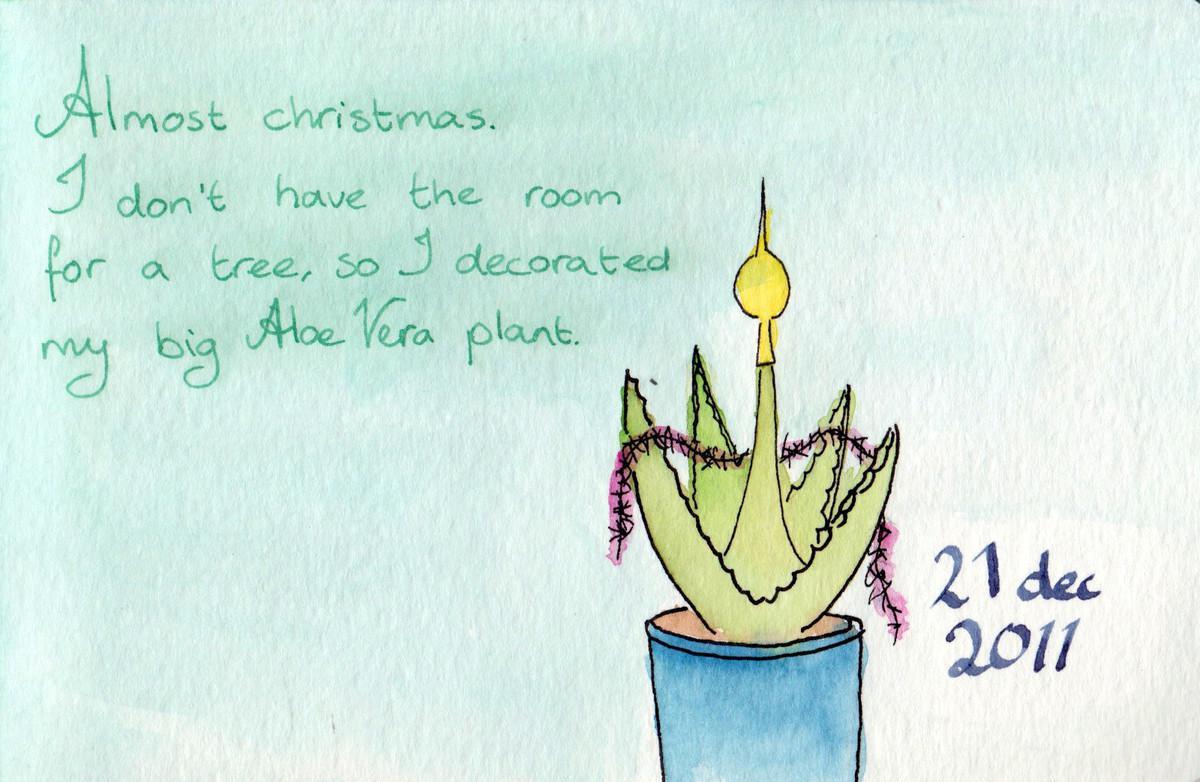 Almost christmas.
I don't have the room
for a tree, so I decorated
my big Aloe Vera plant.
21 dec
2011